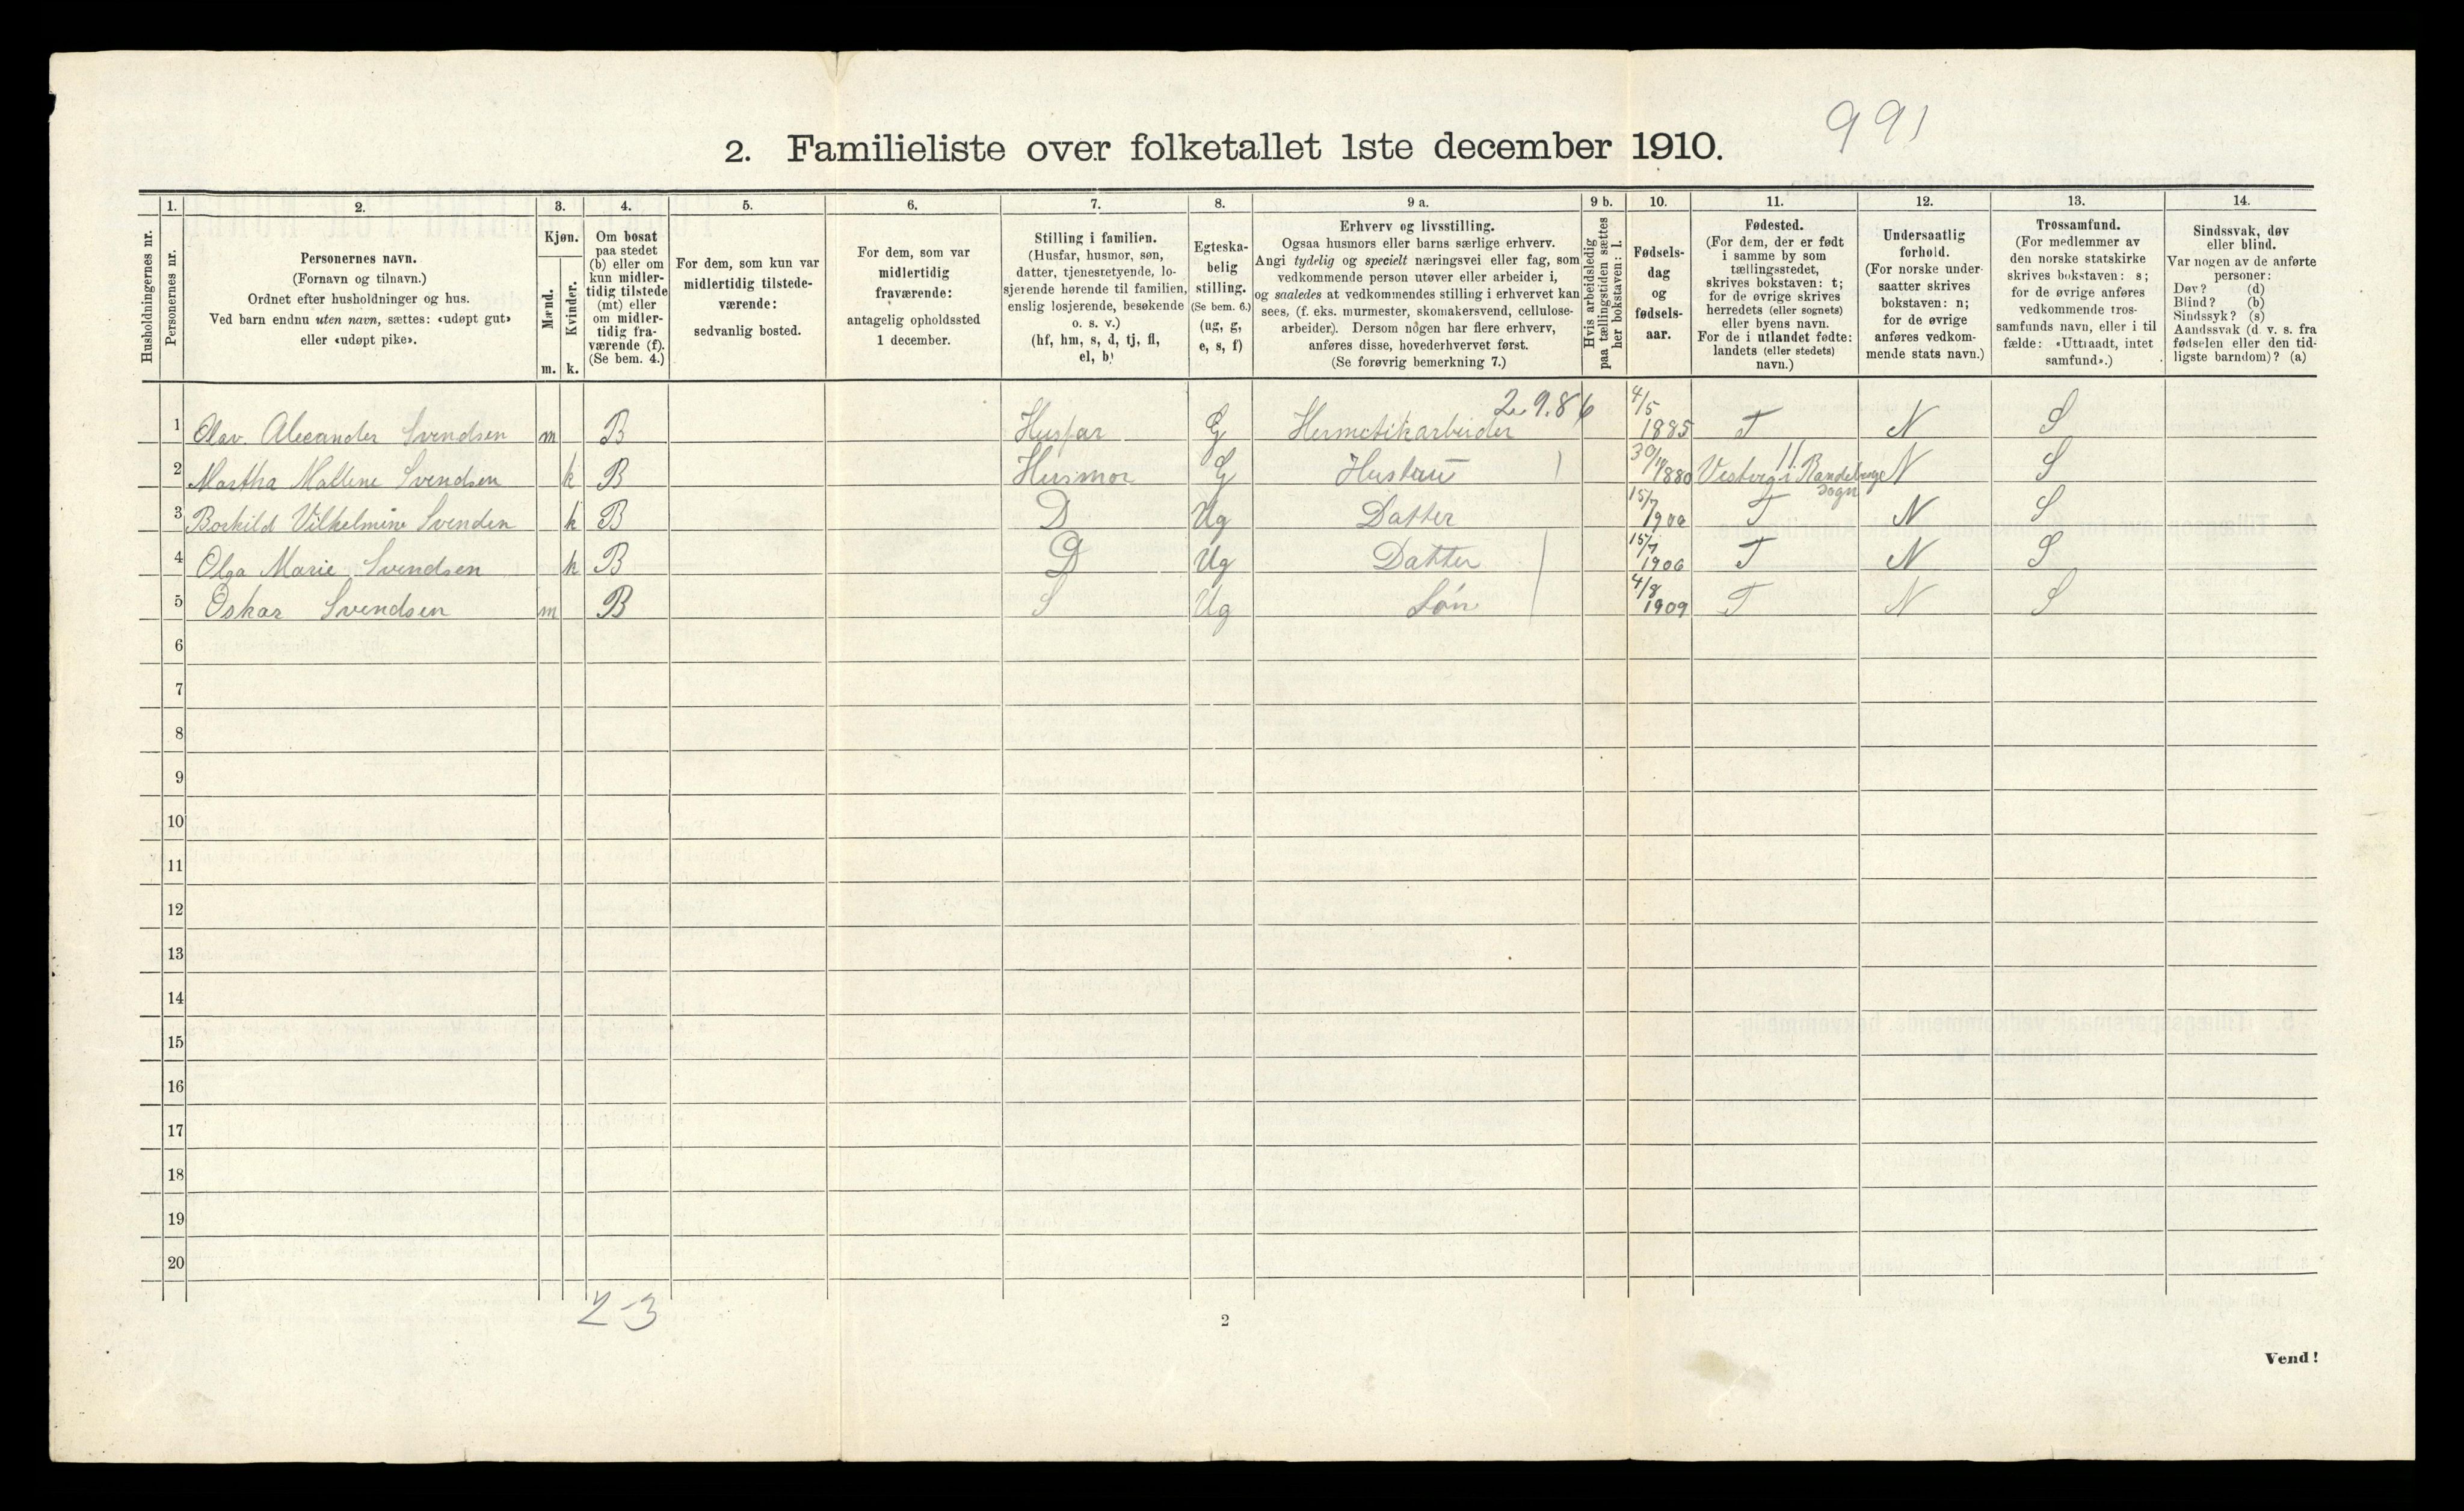 991
2. Familieliste over folketallet 1ste december 1910.
Husholdningernes nr.
1. Personernes nr.
2. Personernes navn.
(Fornavn og tilnavn.)
Ordnet efter husholdninger og hus.
Ved barn endnu uten navn, sættes: «udøpt gut»
eller «udøpt pike».
3. Kjøn.
Mænd. m.
Kvinder. k.
4. Om bosat
paa stedet
(b) eller om
kun midler-
tidig tilstede
(mt) eller
om midler-
tidig fra-
værende (f).
(Se bem. 4.)
5. For dem, som kun var
midlertidig tilstede-
værende:
sedvanlig bosted.
6. For dem, som var
midlertidig
fraværende:
antagelig opholdssted
1 december.
7. Stilling i familien.
(Husfar, husmor, søn,
datter, tjenestetyende, lo-
sjerende hørende til familien,
enslig losjerende, besøkende
o. s. v.)
(hf, hm, s, d, tj, fl,
el, b)
8. Egteska-
belig
stilling.
(Se bem. 6.)
(ug, g,
e, s, f)
9 a. Erhverv og livsstilling.
Ogsaa husmors eller barns særlige erhverv.
Angi tydelig og specielt næringsvei eller fag, som
vedkommende person utøver eller arbeider i,
og saaledes at vedkommendes stilling i erhvervet kan
sees, (f. eks. murmester, skomakersvend, cellulose-
arbeider). Dersom nogen har flere erhverv,
anføres disse, hovederhvervet først.
(Se forøvrig bemerkning 7.)
9 b. Hvis arbeidsledig
paa tællingstiden sættes
her bokstaven: l.
10. Fødsels-
dag
og
fødsels-
aar.
11. Fødested.
(For dem, der er født
i samme by som
tællingsstedet,
skrives bokstaven: t;
for de øvrige skrives
herredets (eller sognets)
eller byens navn.
For de i utlandet fødte:
landets (eller stedets)
navn.)
12. Undersaatlig
forhold.
(For norske under-
saatter skrives
bokstaven: n;
for de øvrige
anføres vedkom-
mende stats navn.)
13. Trossamfund.
(For medlemmer av
den norske statskirke
skrives bokstaven: s;
for de øvrige anføres
vedkommende tros-
samfunds navn, eller i til
fælde: «Uttraadt, intet
samfund».)
14. Sindssvak, døv
eller blind.
Var nogen av de anførte
personer:
Døv? (d)
Blind? (b)
Sindssyk? (s)
Aandssvak (d. v. s. fra
fødselen eller den tid-
ligste barndom)? (a)
2.9.86
1 Olav Alexander Svendsen m B Husfar G Hermetikarbeider 4/5 1885 T N S
2 Martha Mallene Svendsen k B Husmor G Hustru 1880 Vestvig i Randeberge sogn N S
3 Borkild Vilhelmine Svenden k B D Ug Datter 15/7 T N S
4 Olga Marie Svendsen k B D Ug Datter 15/7 1906 T N S
5 Oskar Svendsen m B S Ug Søn 4/8 1909 T N S
6
7
8
9
10
11
12
13
14
15
16
17
18
19
20
2-3
2
Vend!